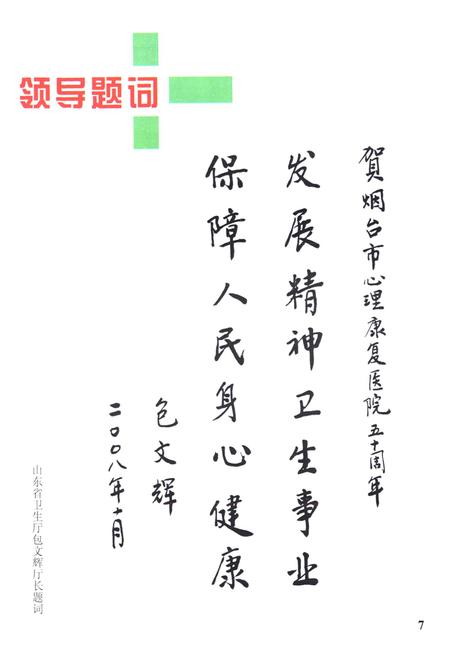 领导题词
贺烟台市心理康复医院五十周年
发展精神卫生事业
保障人民身心健康
包文辉
二〇〇八年十月
山东省卫生厅包文辉厅长题词
7